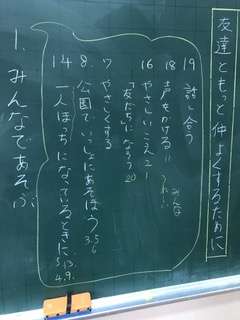 友達ともっと仲よくするために
19 話し合う
18 声をかける
みんな
16 やさしいこえ 21
「友だち」になろう 20
7 やさしくする
8. 公園でいっしょにあそぼう 3.5.6
14 一人ぼっちになっているときに、
1. みんなであそぶ